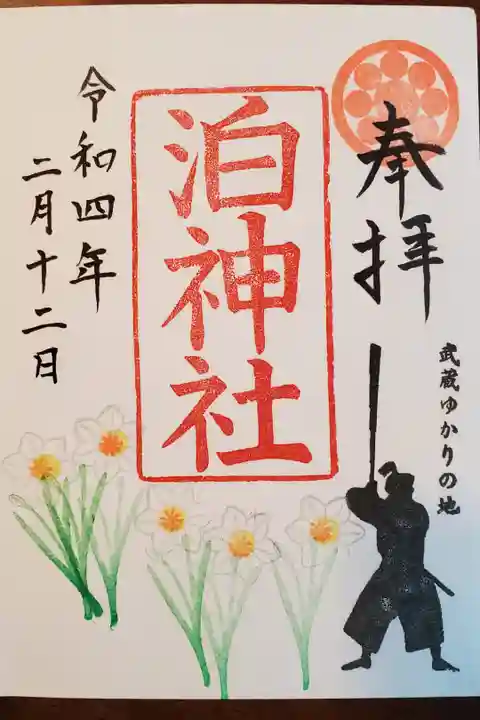 奉拝
武蔵ゆかりの地
泊神社
令和四年
二月十二日